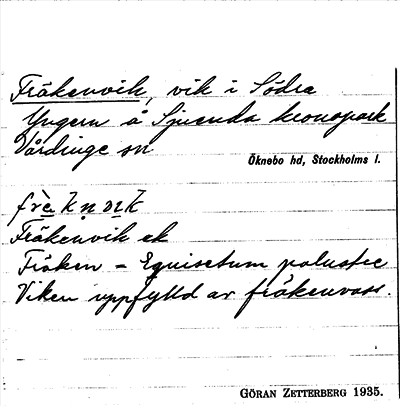 Fräkenvik, vik i Södra
Yngern å Sjunda kronopark
Vårdinge sn
Öknebo hd, Stockholms l.
Fräkenvik ek
Fräken = Equisetum palustre
Viken uppfylld av fräkenvass.
GÖRAN ZETTERBERG 1935.